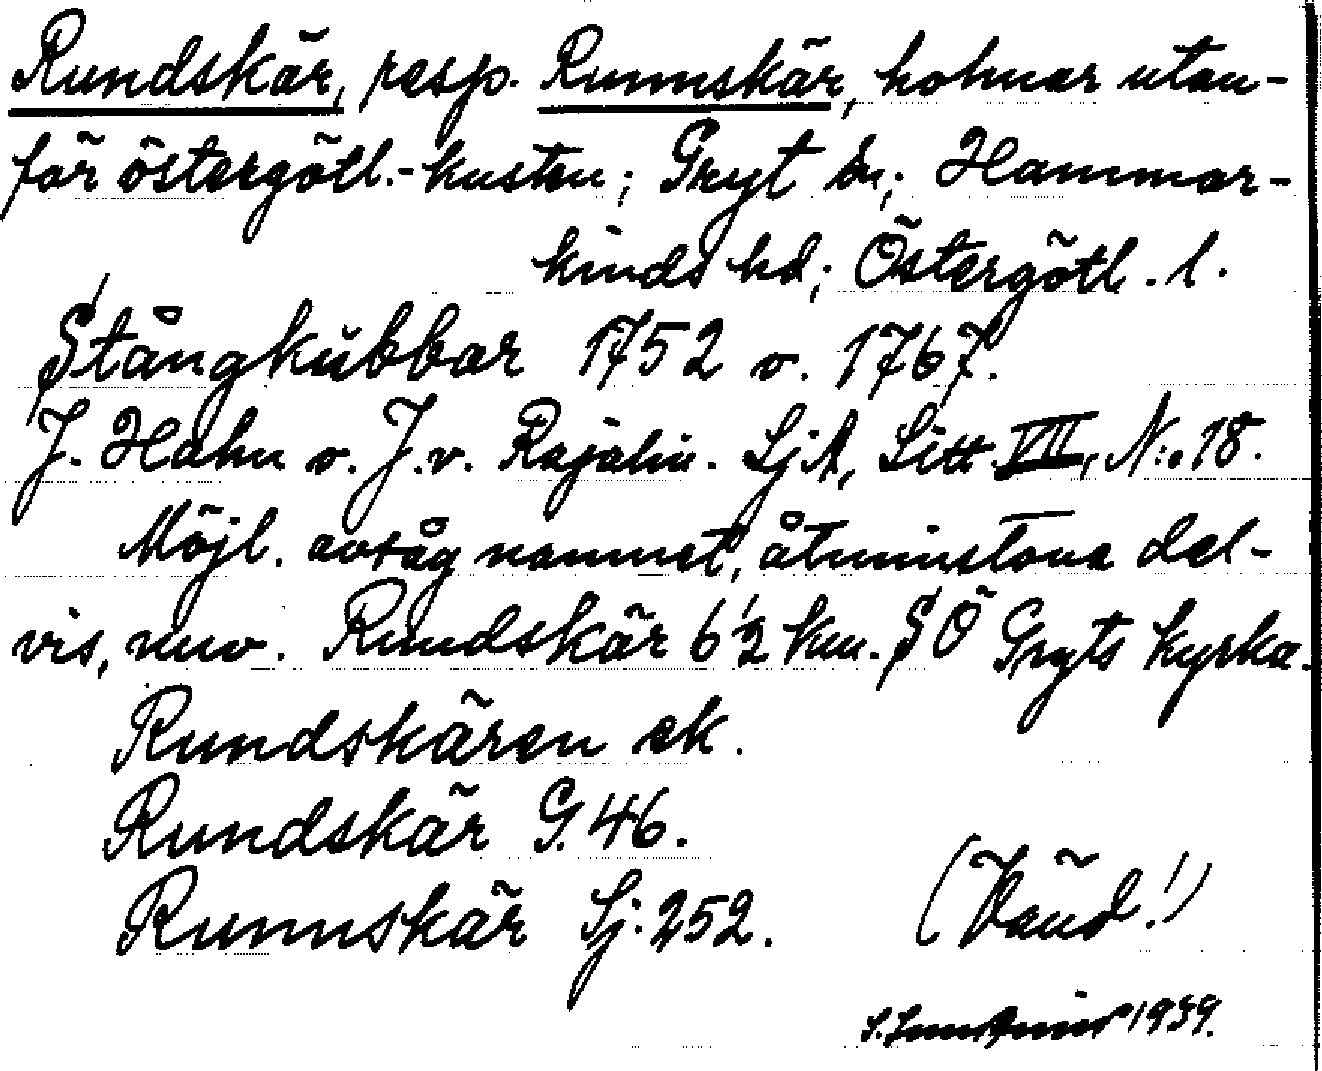 Rundskär, resp. Runnskär, holmar utan-
för östergötl.-kusten; Gryt sn; Hammar-
kinds hd; Östergötl. l.
Stångkubbar 1752 o. 1767.
J. Hahn o. J. v. Rajalin. SjA, Litt VII, N:o 18.
Möjl. avsåg namnet, åtminstone del-
vis, nuv. Rundskär 6 1/2 km. SÖ Gryts kyrka.
Rundskären ek.
Rundskär G. 46.
Runnskär Sj: 252.
(Vänd!)
1939.